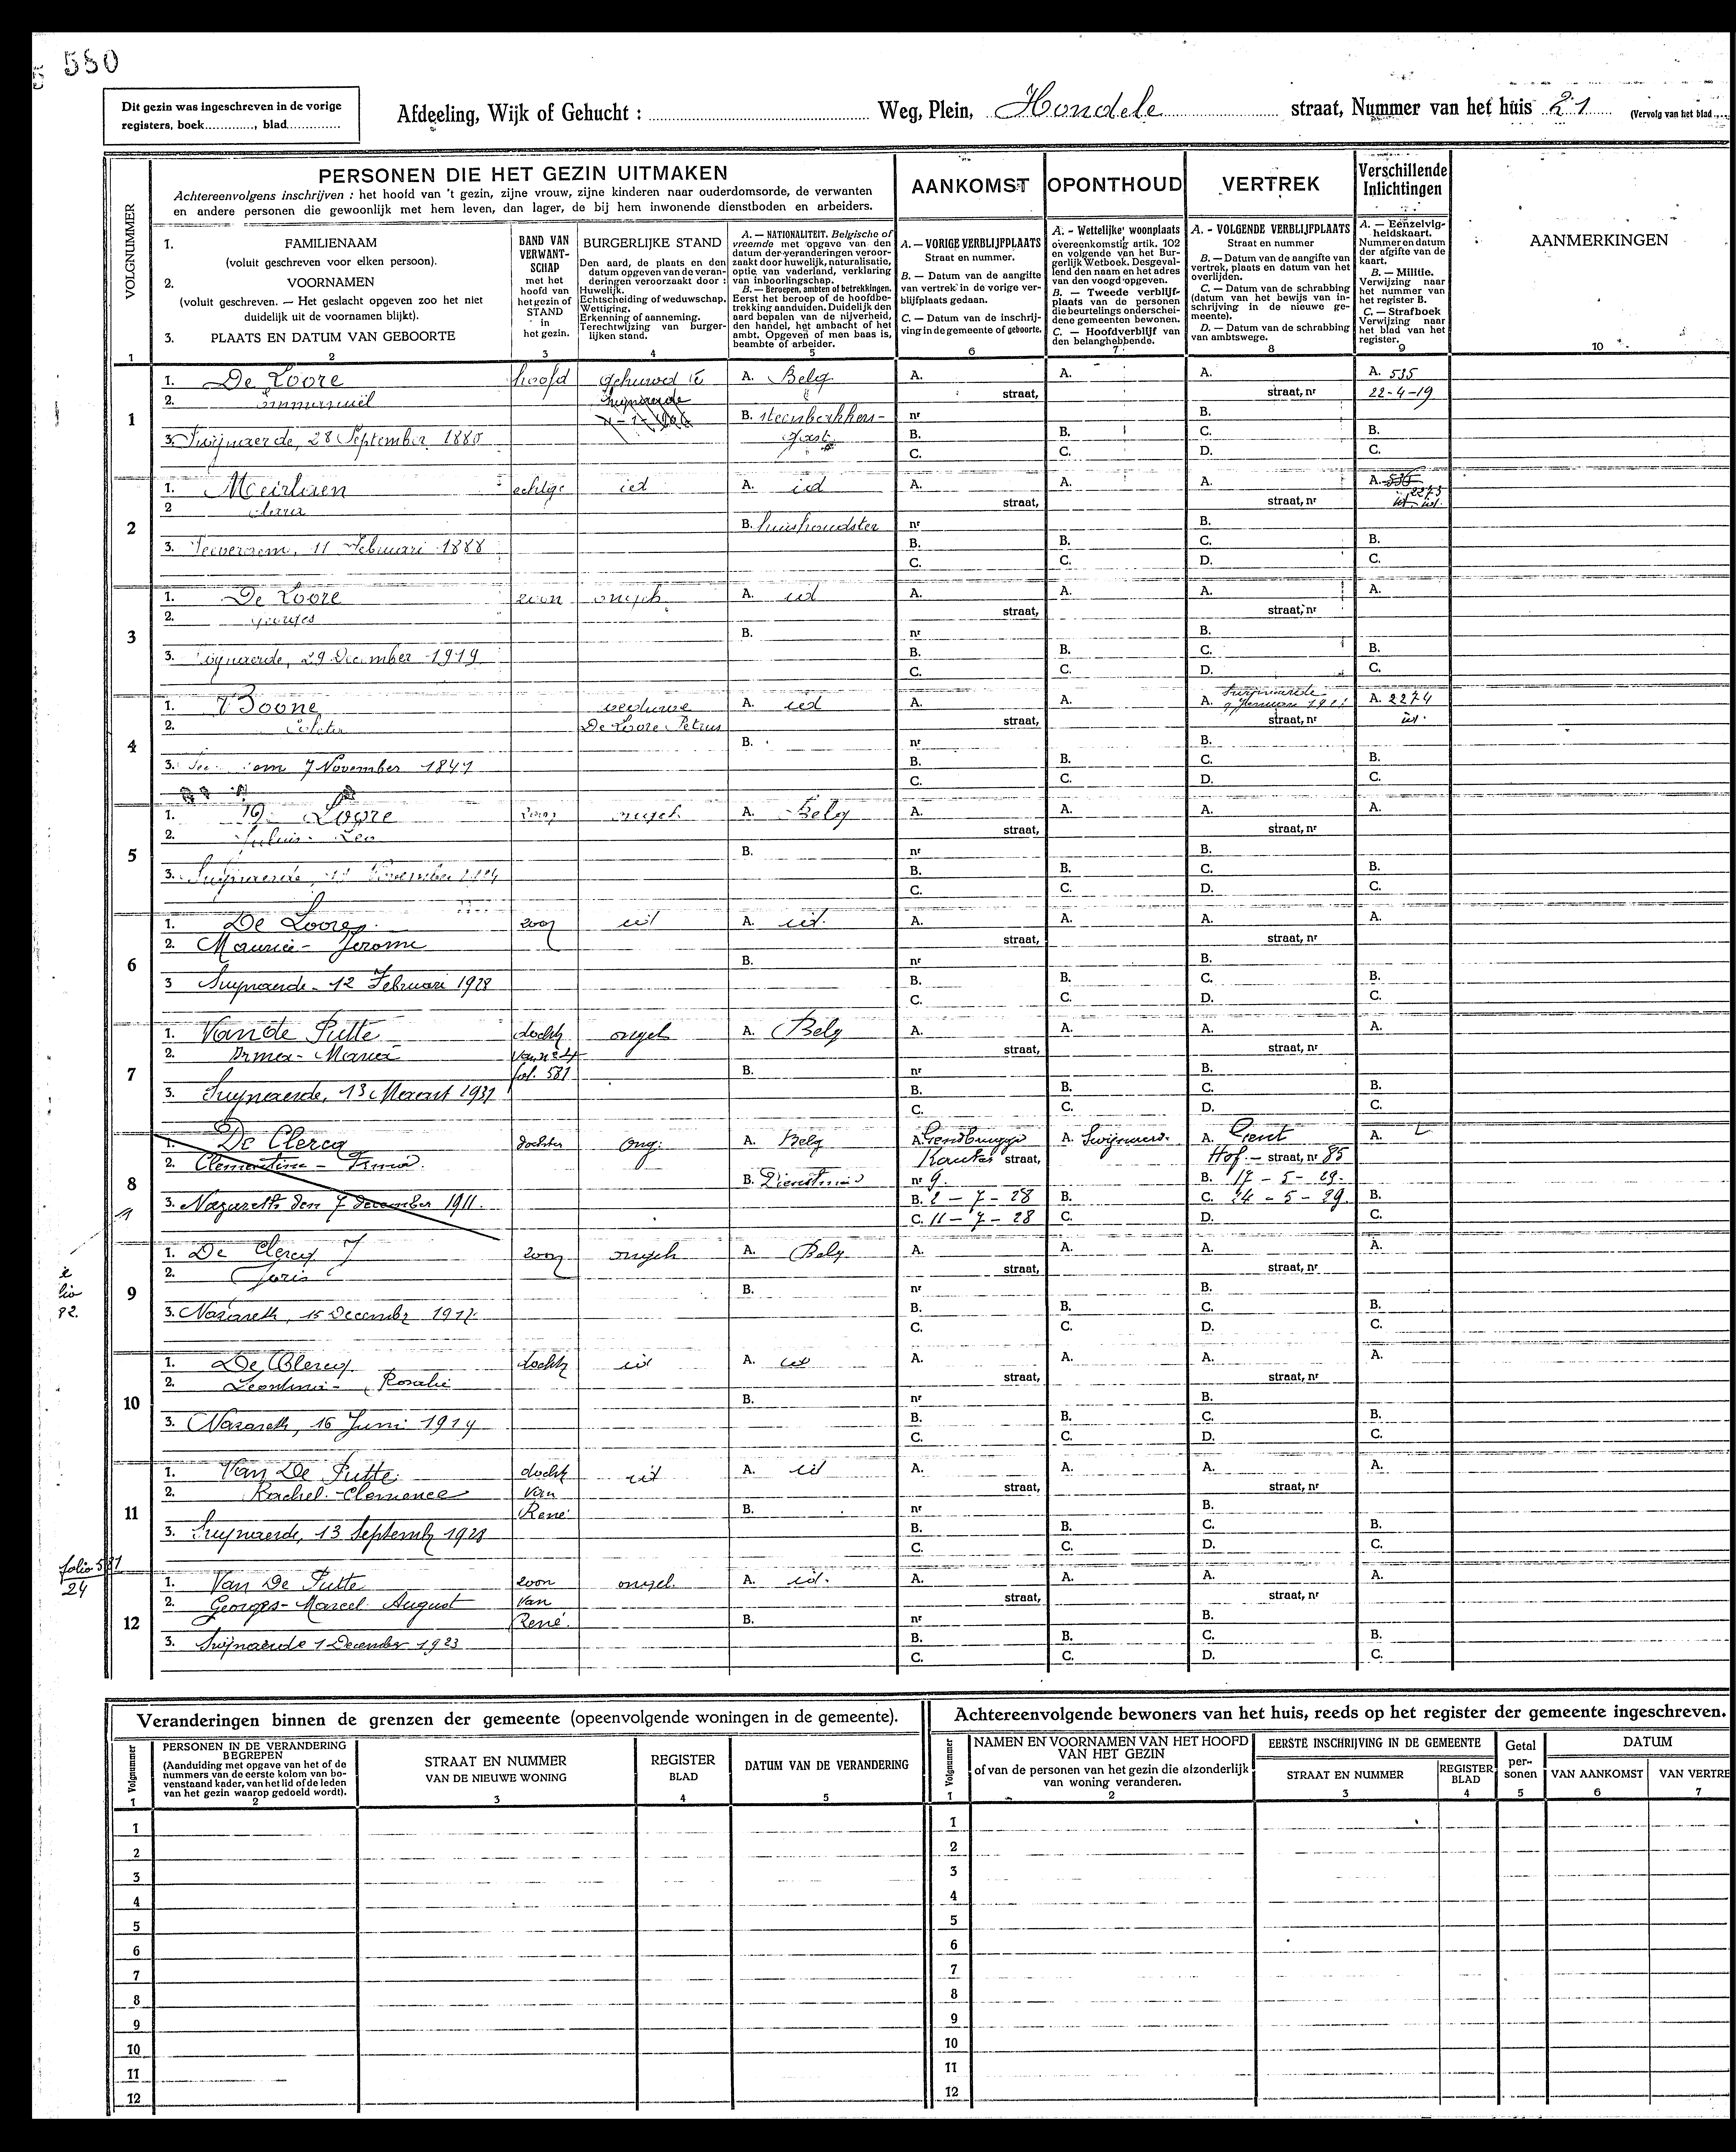 580
Dit gezin was ingeschreven in de vorige
registers, boek............, blad.............
Afdeeling, Wijk of Gehucht : Weg, Plein, Hondele straat, Nummer van het huis 21 (Vervolg van het blad
VOLGNUMMER
PERSONEN DIE HET GEZIN UITMAKEN
Achtereenvolgens inschrijven : het hoofd van 't gezin, zijne vrouw, zijne kinderen naar ouderdomsorde, de verwanten
en andere personen die gewoonlijk met hem leven, dan lager, de bij hem inwonende dienstboden en arbeiders.
1. FAMILIENAAM
(voluit geschreven voor elken persoon).
2. VOORNAMEN
(voluit geschreven. — Het geslacht opgeven zoo het niet
duidelijk uit de voornamen blijkt).
3. PLAATS EN DATUM VAN GEBOORTE
BAND VAN
VERWANT-
SCHAP
met het
hoofd van
het gezin of
STAND
in
het gezin.
BURGERLIJKE STAND
Den aard, de plaats en den
datum opgeven van de veran-
deringen veroorzaakt door :
Huwelijk.
Echtscheiding of weduwschap.
Wettiging.
Erkenning of aanneming.
Terechtwijzing van burger-
lijken stand.
A. — NATIONALITEIT. Belgische of
vreemde met opgave van den
datum der veranderingen veroor-
zaakt door huwelijk, naturalisatie,
optie van vaderland, verklaring
van inboorlingschap.
B. — Beroepen, ambten of betrekkingen.
Eerst het beroep of de hoofdbe-
trekking aanduiden. Duidelijk den
aard bepalen van de nijverheid,
den handel, het ambacht of het
ambt. Opgeven of men baas is,
beambte of arbeider.
AANKOMST
A. — VORIGE VERBLIJFPLAATS
Straat en nummer.
B. — Datum van de aangifte
van vertrek in de vorige ver-
blijfplaats gedaan.
C. — Datum van de inschrij-
ving in de gemeente of geboorte.
OPONTHOUD
A. - Wettelijke woonplaats
overeenkomstig artik. 102
en volgende van het Bur-
gerlijk Wetboek. Desgeval-
lend den naam en het adres
van den voogd opgeven.
B. — Tweede verblijf-
plaats van de personen
die beurtelings onderschei-
dene gemeenten bewonen.
C. — Hoofdverblijf van
den belanghebbende.
VERTREK
A. - VOLGENDE VERBLIJFPLAATS
Straat en nummer
B. — Datum van de aangifte van
vertrek, plaats en datum van het
overlijden.
C. — Datum van de schrabbing
(datum van het bewijs van in-
schrijving in de nieuwe ge-
meente).
D. — Datum van de schrabbing
van ambtswege.
Verschillende
Inlichtingen
A. — Eenzelvig-
heidskaart.
Nummer en datum
der afgifte van de
kaart.
B. — Militie.
Verwijzing naar
het nummer van
het register B.
C. — Strafboek
Verwijzing naar
het blad van het
register.
AANMERKINGEN
1 2 3 4 5 6 7 8 9 10
1
1. De Loore hoofd gehuwd te A. Belg A. A. A. A. 535
2. Emmanuel straat, straat, nr 22-4-19
B. nr B.
3. Swijnaerde, 28 September 1880 B. B. C. B.
C. C. D. C.
2
1. Meirlaen echtge id A. id A. A. A. A. 535
2 Clara straat, straat, nr 2273
B. huishoudster nr B.
3. 11 Februari 1888 B. B. C. B.
C. C. D. C.
3
1. De Loore zoon ongeh A. id A. A. A. A.
2. Georges straat, straat, nr
B. nr B.
3. 29 December 1919 B. B. C. B.
C. C. D. C.
4
1. Boone weduwe A. id A. A. A. A. 2274
2. De Loore Petrus straat, straat, nr id.
B. nr B.
3. 7 November 1841 B. B. C. B.
C. C. D. C.
5
1. De Loore zoon ongeh A. Belg A. A. A. A.
2. Leo straat, straat, nr
B. nr B.
3. November 1924 B. B. C. B.
C. C. D. C.
6
1. De Loore zoon id A. id. A. A. A. A.
2. Maurice - Jerome straat, straat, nr
B. nr B.
3 Swynaerde - 12 Februari 1928 B. B. C. B.
C. C. D. C.
7
1. Van de Putte docht ongeh A. Belg A. A. A. A.
2. Irma - Maria van n° 4 straat, straat, nr
fol. 581 B. nr B.
3. Swynaerde, 13 Maart 1931 B. B. C. B.
C. C. D. C.
8
1. De Clercq dochter ong: A. Belg A. Gendbrugge A. Swijnaerd. A. Gent A.
2. Clementine - Irma. Kouter straat, Hof - straat, nr 85
B. Dienstmeid nr 9. B. 17 - 5 - 29.
3. Nazareth den 7 december 1911. B. 2 - 7 - 28 B. C. 24 - 5 - 29. B.
C. 11 - 7 - 28 C. D. C.
9
1. De Clercq zoon ongeh A. Belg A. A. A. A.
2. Joris straat, straat, nr
B. nr B.
3. Nazareth, 15 December 1912 B. B. C. B.
C. C. D. C.
10
1. De Clercq docht id A. id A. A. A. A.
2. Leontina - Rosalie straat, straat, nr
B. nr B.
3. Nazareth, 16 Juni 1914 B. B. C. B.
C. C. D. C.
11
1. Van De Putte docht id A. id A. A. A. A.
2. Rachel - Clemence van straat, straat, nr
René B. nr B.
3. Swynaerde, 13 Septemb 1928 B. B. C. B.
C. C. D. C.
folio 581
24
12
1. Van De Putte zoon ongeh. A. id. A. A. A. A.
2. Georges - Marcel August van straat, straat, nr
René. B. nr B.
3. Swijnaerde 1 December 1923 B. B. C. B.
C. C. D. C.
Veranderingen binnen de grenzen der gemeente (opeenvolgende woningen in de gemeente).
Volgnummer
PERSONEN IN DE VERANDERING
BEGREPEN
(Aanduiding met opgave van het of de
nummers van de eerste kolom van bo-
venstaand kader, van het lid of de leden
van het gezin waarop gedoeld wordt).
STRAAT EN NUMMER
VAN DE NIEUWE WONING
REGISTER
BLAD
DATUM VAN DE VERANDERING
1 2 3 4 5
1
2
3
4
5
6
7
8
9
10
11
12
Achtereenvolgende bewoners van het huis, reeds op het register der gemeente ingeschreven.
Volgnummer
NAMEN EN VOORNAMEN VAN HET HOOFD
VAN HET GEZIN
of van de personen van het gezin die afzonderlijk
van woning veranderen.
EERSTE INSCHRIJVING IN DE GEMEENTE
STRAAT EN NUMMER
REGISTER
BLAD
Getal
per-
sonen
DATUM
VAN AANKOMST VAN VERTRE
1 2 3 4 5 6 7
1
2
3
4
5
6
7
8
9
10
11
12